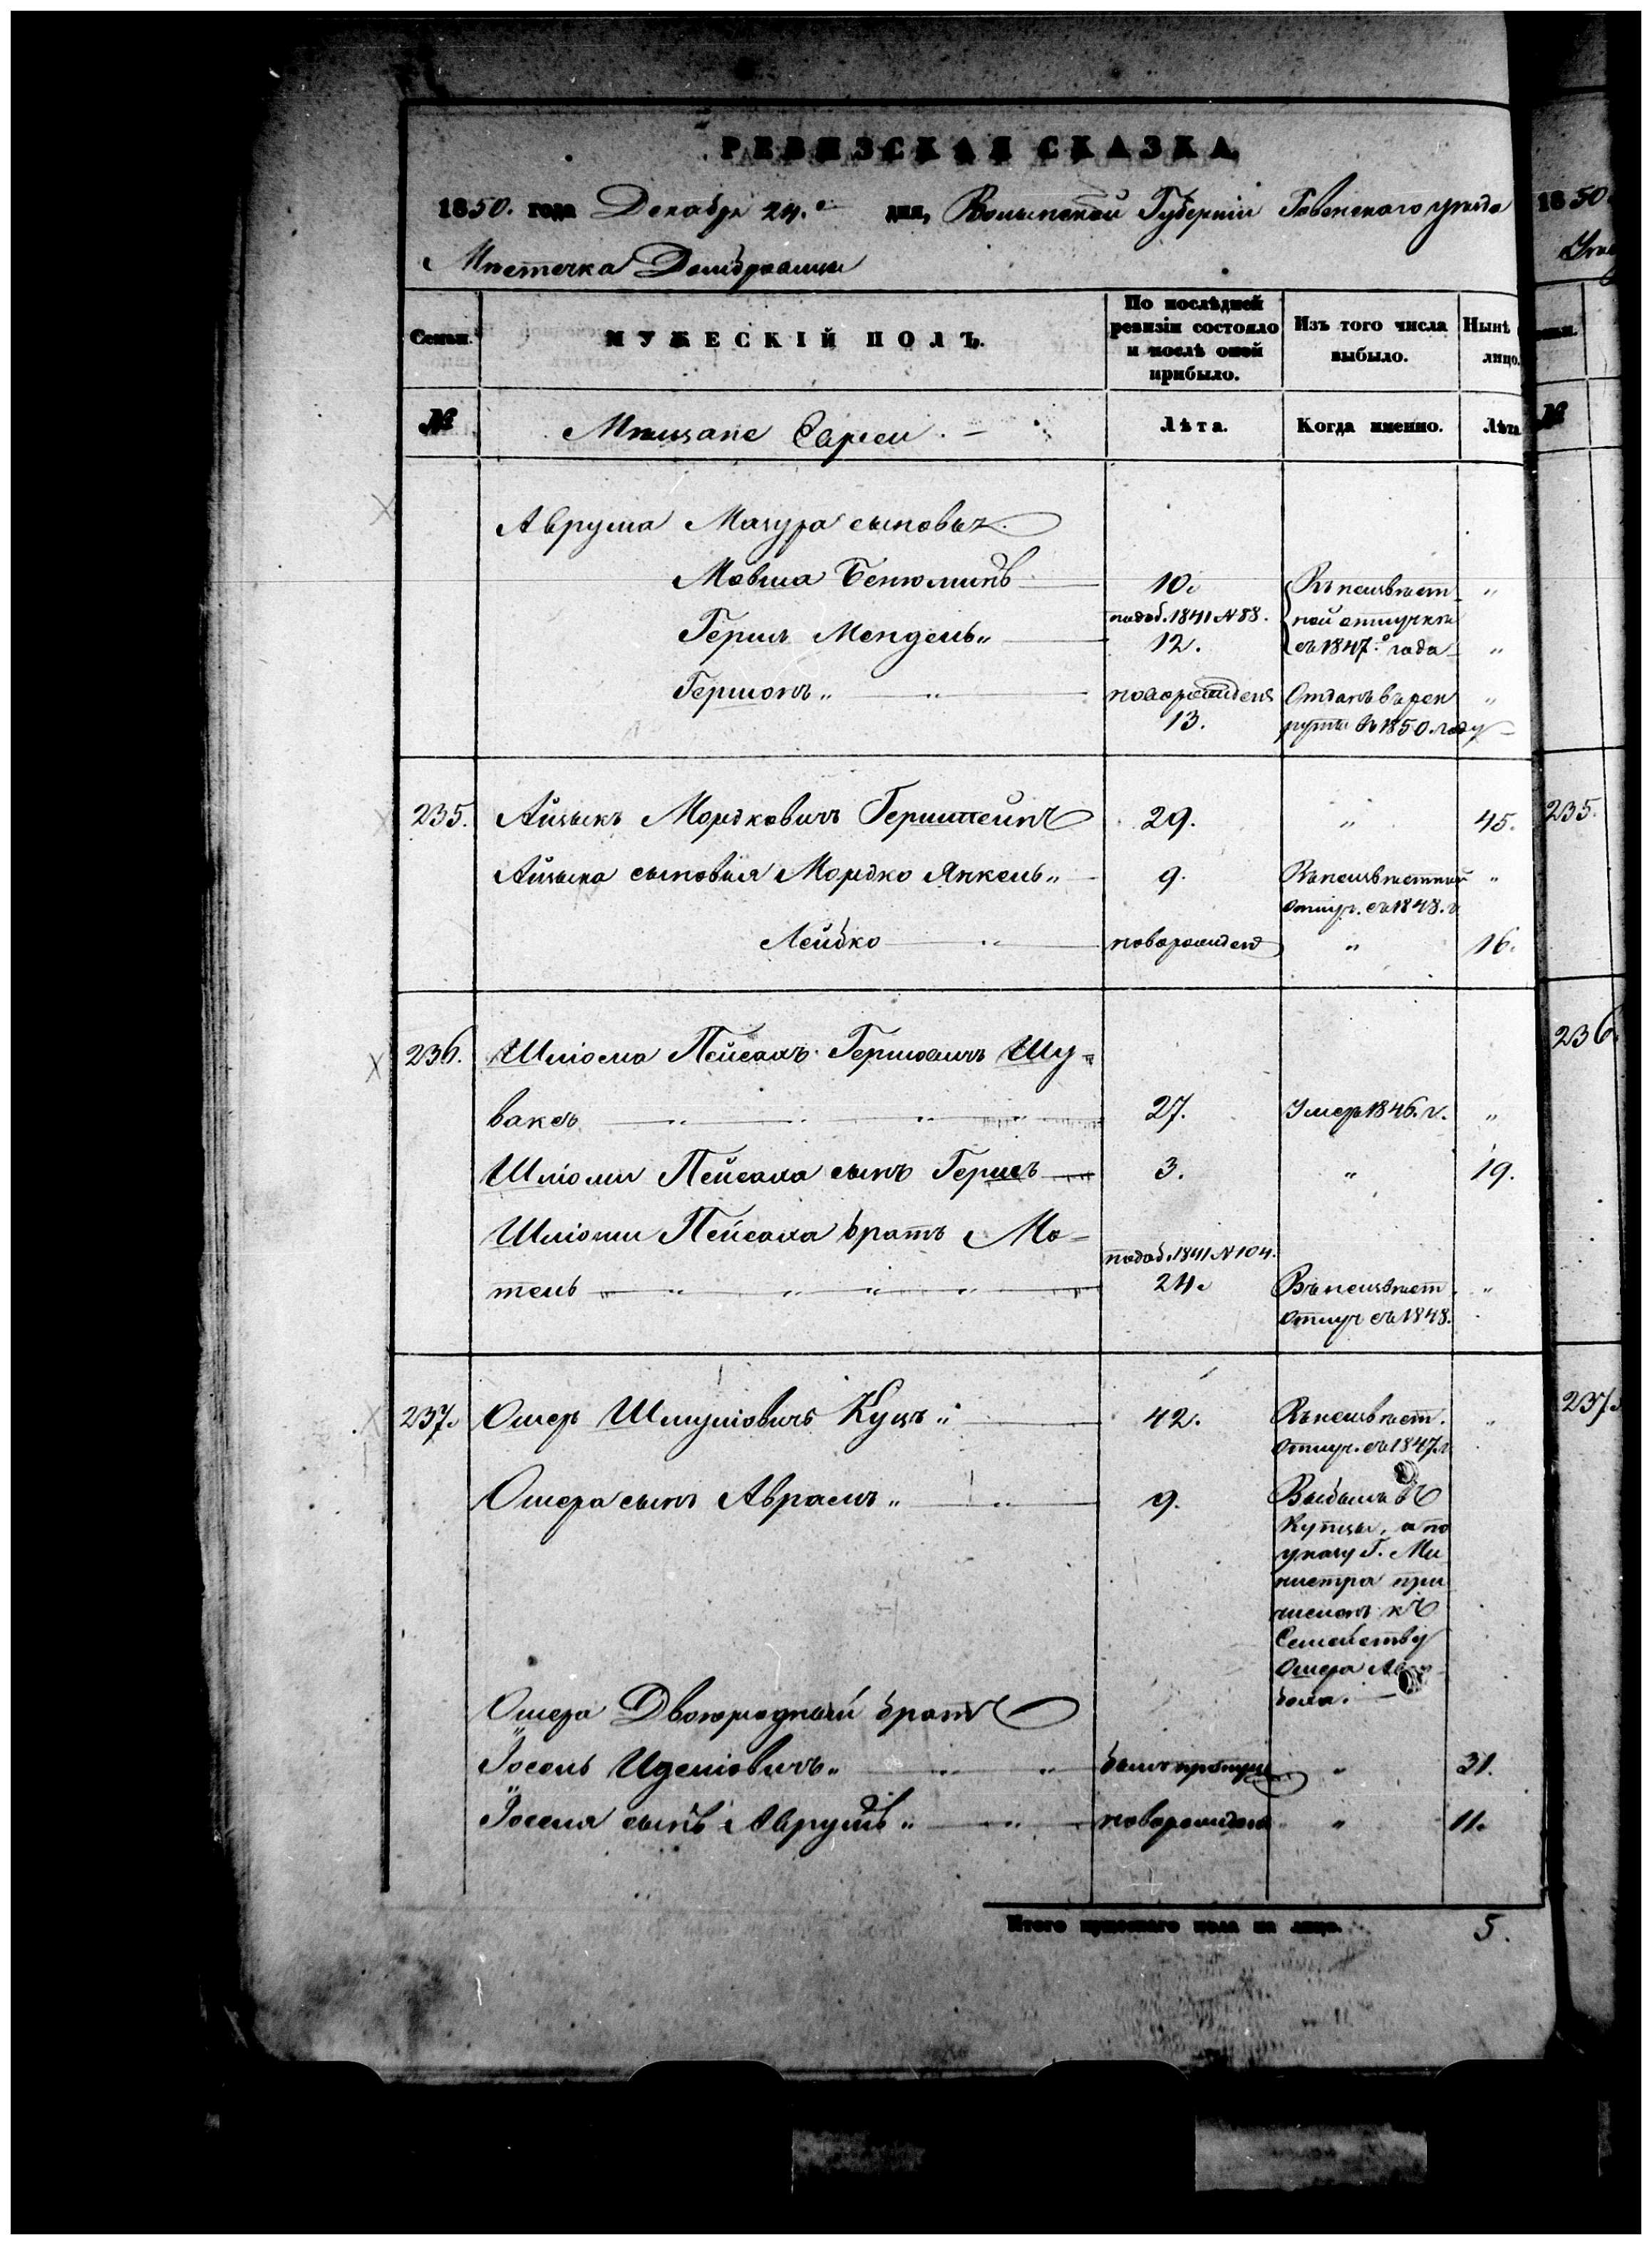 РЕВИЗСКАЯ СКАЗКА
1850. года Декабря 24.го дня, Волынской Губернiи Ровенского уезда
Местечка Домбровицы
Семьи. МУЖЕСКІЙ ПОЛЪ. По послѣдней ревизіи состояло и послѣ оной прибыло. Изъ того числа выбыло. Нынѣ лицо.
№ Мещане Евреи. Лѣта. Когда именно. Лѣта
Аврума Мазура сыновья
Мовша Бенюминъ 10. Въ неизвест
подоб. 1841 N 88. ной отлучке
Герш Мендель 12. съ 1847.о года
Гершонъ новорожденъ Отданъ въ рек
13. руты въ 1850. году
235. Айзыкъ Мордковичъ Герштейнъ 29. " 45.
Айзыка сыновья Мордко Янкель 9. Въ неизвестной "
отлуч. съ 1848. г
Лейбко новорожден " 16.
236. Шлiома Пейсахъ Гершовичъ Шу-
вакъ 27. Умеръ 1846. г. "
Шлiомы Пейсаха сынъ Гершъ 3. " 19.
Шлiомы Пейсаха братъ Мо-
подоб. 1841 N 104.
тель 24. Въ неизвест "
отлуч съ 1848.
237. Ошер Шмулiовичъ Куцъ 42. Въ неизвест. "
отлуч. съ 1847. г
Ошера сынъ Аврамъ 9. Выбылъ въ
Купцы, а по
указу Г. Ми
нистра при
численъ къ
Семейству
Ошера
Ошера Двоюродный братъ
Iосель Иделiовичъ былъ пропущ " 31.
Iоселя сынъ Аврумъ новорожден " 11.
Итого мужескаго пола на лицо. 5.
1850
235.
236.
237.